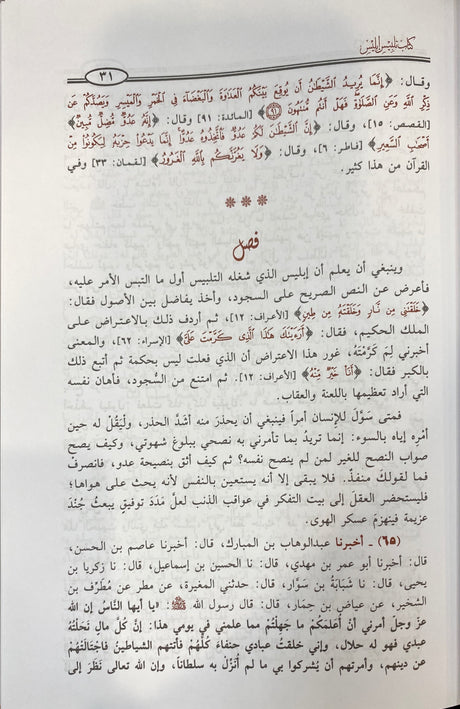 كتاب تلبيس إبليس
٣١
وقال: ﴿إِنَّمَا يُرِيدُ الشَّيْطَٰنُ أَن يُوقِعَ بَيْنَكُمُ الْعَدَاوَةَ وَالْبَغْضَآءَ فِي الْخَمْرِ وَالْمَيْسِرِ وَيَصُدَّكُمْ عَن
ذِكْرِ اللَّهِ وَعَنِ الصَّلَوٰةِ فَهَلْ أَنتُم مُّنتَهُونَ ﴿٩١﴾﴾ [المائدة: ٩١] وقال: ﴿إِنَّهُ عَدُوٌّ مُّضِلٌّ مُّبِينٌ﴾
[القصص: ١٥]، وقال: ﴿إِنَّ الشَّيْطَٰنَ لَكُمْ عَدُوٌّ فَاتَّخِذُوهُ عَدُوًّا إِنَّمَا يَدْعُوا حِزْبَهُ لِيَكُونُوا مِنْ
أَصْحَٰبِ السَّعِيرِ﴾ [فاطر: ٦]، وقال: ﴿وَلَا يَغُرَّنَّكُم بِاللَّهِ الْغَرُورُ﴾ [لقمان: ٣٣] وفي
القرآن من هذا كثير.
***
فصل
وينبغي أن يعلم أن إبليس الذي شغله التلبيس أول ما التبس الأمر عليه،
فأعرض عن النص الصريح على السجود، وأخذ يفاضل بين الأصول فقال:
﴿خَلَقْتَنِي مِن نَّارٍ وَخَلَقْتَهُ مِن طِينٍ﴾ [الأعراف: ١٢]، ثم أردف ذلك بالاعتراض على
الملك الحكيم، فقال: ﴿أَرَءَيْتَكَ هَٰذَا الَّذِي كَرَّمْتَ عَلَيَّ﴾ [الإسراء: ٦٢]، والمعنى
أخبرني لِمَ كَرَّمْتَهُ، غور هذا الاعتراض أن الذي فعلت ليس بحكمة ثم أتبع ذلك
بالكبر فقال: ﴿أَنَا خَيْرٌ مِّنْهُ﴾ [الأعراف: ١٢]. ثم امتنع من السُّجود، فأهان نفسه
التي أراد تعظيمها باللعنة والعقاب.
فمتى سَوَّلَ للإنسان أمراً فينبغي أن يحذرَ منه أشدَّ الحذر، ولْيَقُلْ له حين
أمْرِه إياه بالسوء: إنما تريدُ بما تأمرني به نصحي ببلوغ شهوتي، وكيف يصح
صواب النصح للغير لمن لم ينصح نفسه؟ ثم كيف أثق بنصيحة عدو، فانصرفْ
فما لقولكَ منفذٌ. فلا يبقى إلا أنه يستعين بالنفس لأنه يحث على هواها؛
فليستحضر العقلَ إلى بيت التفكر في عواقب الذنب لعلَّ مَدَدَ توفيقٍ يبعثُ جُنْدَ
عزيمة فينهزمَ عسكر الهوى.
(٦٥) ـ أخبرنا عبدالوهاب بن المبارك، قال: أخبرنا عاصم بن الحسن،
قال: أخبرنا أبو عمر بن مهدي، قال: نا الحسين بن إسماعيل، قال: نا زكريا بن
يحيى، قال: نا شَبَابَةُ بن سَوَّار، قال: حدثني المغيرة، عن مطر عن مُطَرِّف بن
الشخير، عن عياض بن حِمَار، قال: قال رسول الله ﷺ: «يا أيها النَّاسُ إن الله
عزّ وجلّ أمرني أنْ أُعَلمَكُمْ ما جَهِلْتُمْ مما علمني في يومي هذا: إنَّ كُلَّ مالٍ نَحَلْتُهُ
عبدي فهو له حلال، وإني خلقتُ عبادي حنفاءَ كلَّهُمْ فأتتهم الشياطينُ فاجْتَالَتْهُمْ
عن دينهم، وأمرتهم أن يُشركوا بي ما لم أُنَزِّلْ به سلطاناً، وإن الله تعالى نَظَرَ إلى